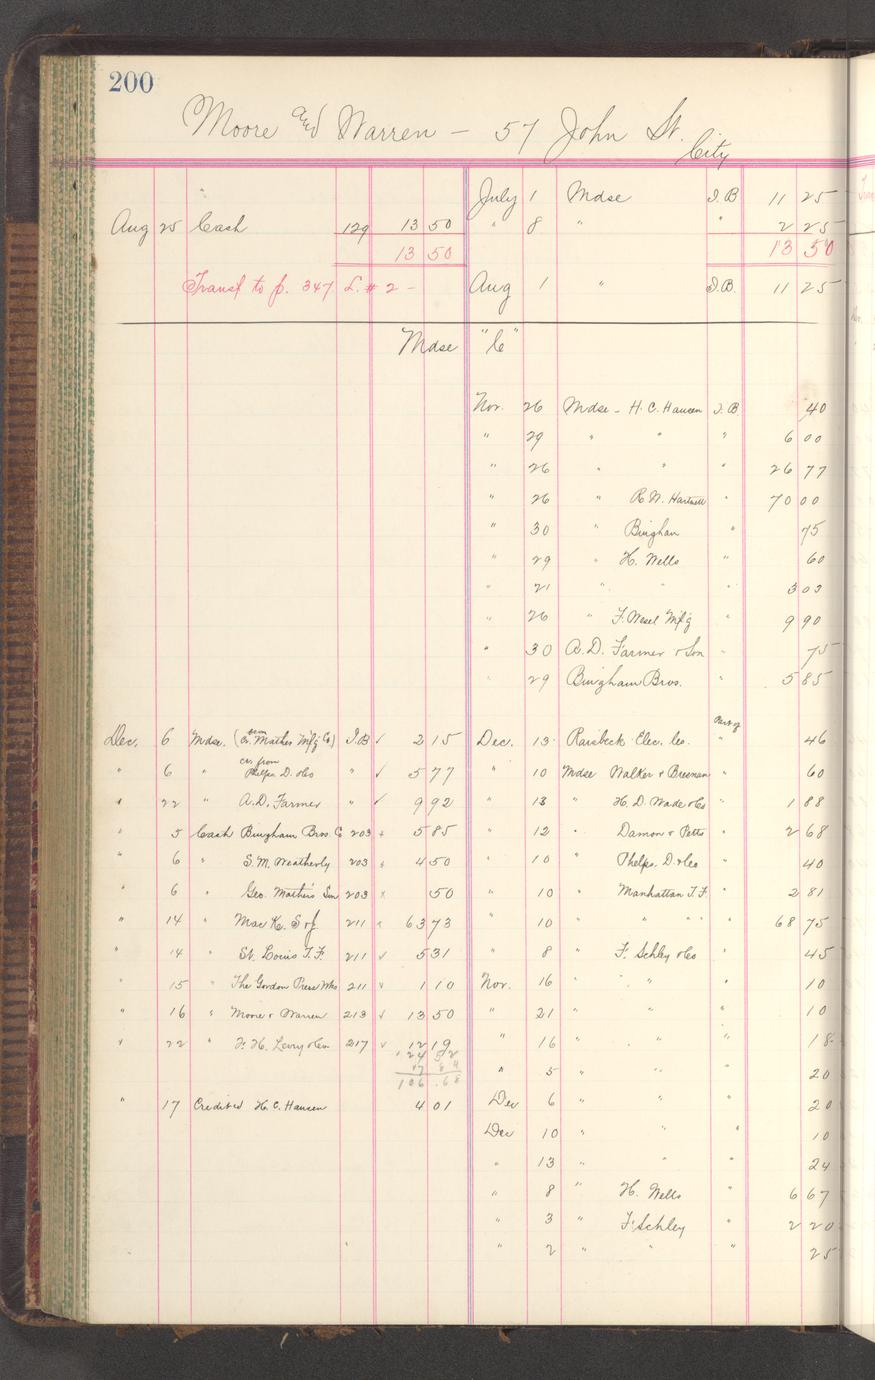 200
Moore and Warren — 57 John St. City
July 1 Mdse I.B 11 25
Aug 25 Cash 129 13 50 " 8 " " 2 25
13 50 13 50
Transf to p. 347 L. # 2 - Aug 1 " I.B. 11 25
Mdse "C"
Nov. 26 Mdse - H.C. Hansen I.B 40
" 29 " " " 6 00
" 26 " " " 26 77
" 26 " R.W. Hartnett " 70 00
" 30 " Bingham " 75
" 29 " H. Wells " 60
" 21 " " " 3 03
" 26 " F. Wesel Mfg " 9 90
" 30 A.D. Farmer & Son " 75
" 29 Bingham Bros. " 5 85
Dec. 6 Mdse. ( Mather Mfg Co) I.B ✓ 2 15 Dec. 13 Raisbeck Elec. Co. " 46
" 6 " cr. from Phelps D. & Co " ✓ 5 77 " 10 Mdse Walker & Bresnan " 60
" 22 " A.D. Farmer " ✓ 9 92 " 13 " H.D. Wade & Co " 1 88
" 5 Cash Bingham Bros. Co 203 5 85 " 12 " Damon & Petts " 2 68
" 6 " S.M. Weatherly 203 4 50 " 10 " Phelps, D. & Co " 40
" 6 " Geo. Mather's Son 203 50 " 10 " Manhattan T.F. " 2 81
" 14 " Mac K. S & J. 211 63 73 " 10 " " " " " 68 75
" 14 " St. Louis T.F. 211 ✓ 5 31 " 8 " F. Schley & Co " 45
" 15 " The Gordon Press Wks 211 ✓ 1 10 Nov. 16 " " " 10
" 16 " Moore & Warren 213 ✓ 13 50 " 21 " " " 10
" 22 " F. H. Levey & Co 217 ✓ 12 19 " 16 " " " 18
124 52
17 84
106.68
" 5 " " " 20
" 17 Credited H.C. Hansen 4 01 Dec 6 " " " 20
Dec 10 " " " 10
" 13 " " " 24
" 8 " H. Wells " 6 67
" 3 " F. Schley " 2 20
" 2 " " " 25